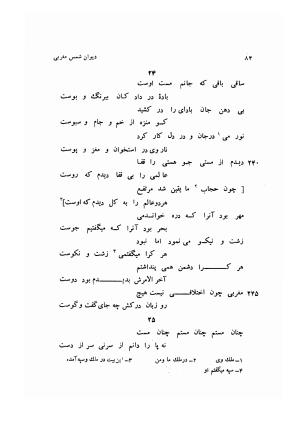 ۸۴
دیوان شمس مغربی
۲۴
ساقی باقی که جانم مست اوست
بادهٔ در داد کان بیرنگ و بوست
بی دهن جان باده‌ای را در کشید
کو منزه از خم و جام و سبوست
نور می ۱ درجان و در دل کار کرد
نار وی در استخوان و مغز و پوست
۲۴۰ دیدم از مستی جو هستی را قفا
عالمی را بی قفا دیدم که روست
[ چون حجاب ۲ ما یقین شد مرتفع
هردو عالم را به کل دیدم که اوست] ۳
مهر بود آنرا که ذره خواندمی
بحر بود آنرا که میگفتیم جوست
زشت و نیکو می نمود اما نبود
هر کرا میگفتمی ۴ زشت و نکوست
هر که را دشمن همی پنداشتم
آخر الامرش بدیدم بود دوست
۲۴۵ مغربی چون اختلافی نیست هیچ
رو زبان درکش چه جای گفت و گوست
۲۵
چنان مستم چنان مستم چنان مست
نه پا را دانم از سرنی سر از دست
۱- ملک وی ۲- درملک ما ومن ۳- این بیت در ملک وسپه آمده
۴- سپه میگفتم او